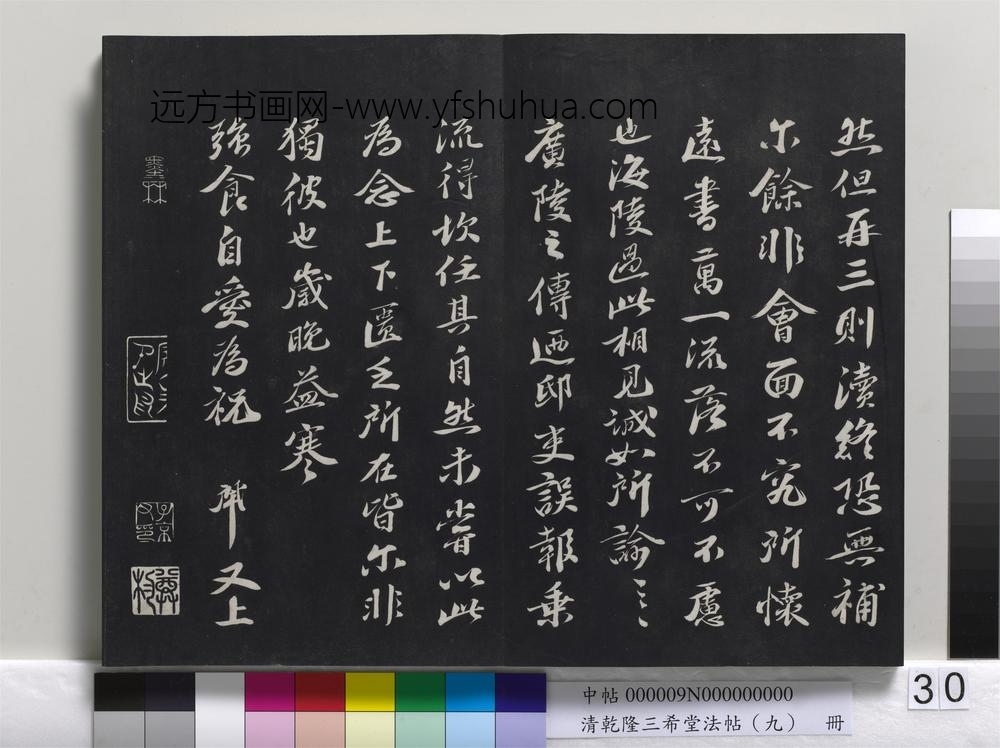 远方书画网-www.yfshuhua.com
然但再三則瀆終恐無補
尒餘非會面不究所懷
遠書萬一流落不可不慮
也海陵過此相見誠如所諭〻
廣陵之傳廼邸吏誤報乗
流得坎任其自然未嘗以此
為念上下匱乏所在皆尒非
獨彼也歲晚益寒
強食自愛為祝 軾又上
墨林
子京父印
中帖 000009N000000000
清乾隆三希堂法帖（九） 冊
30